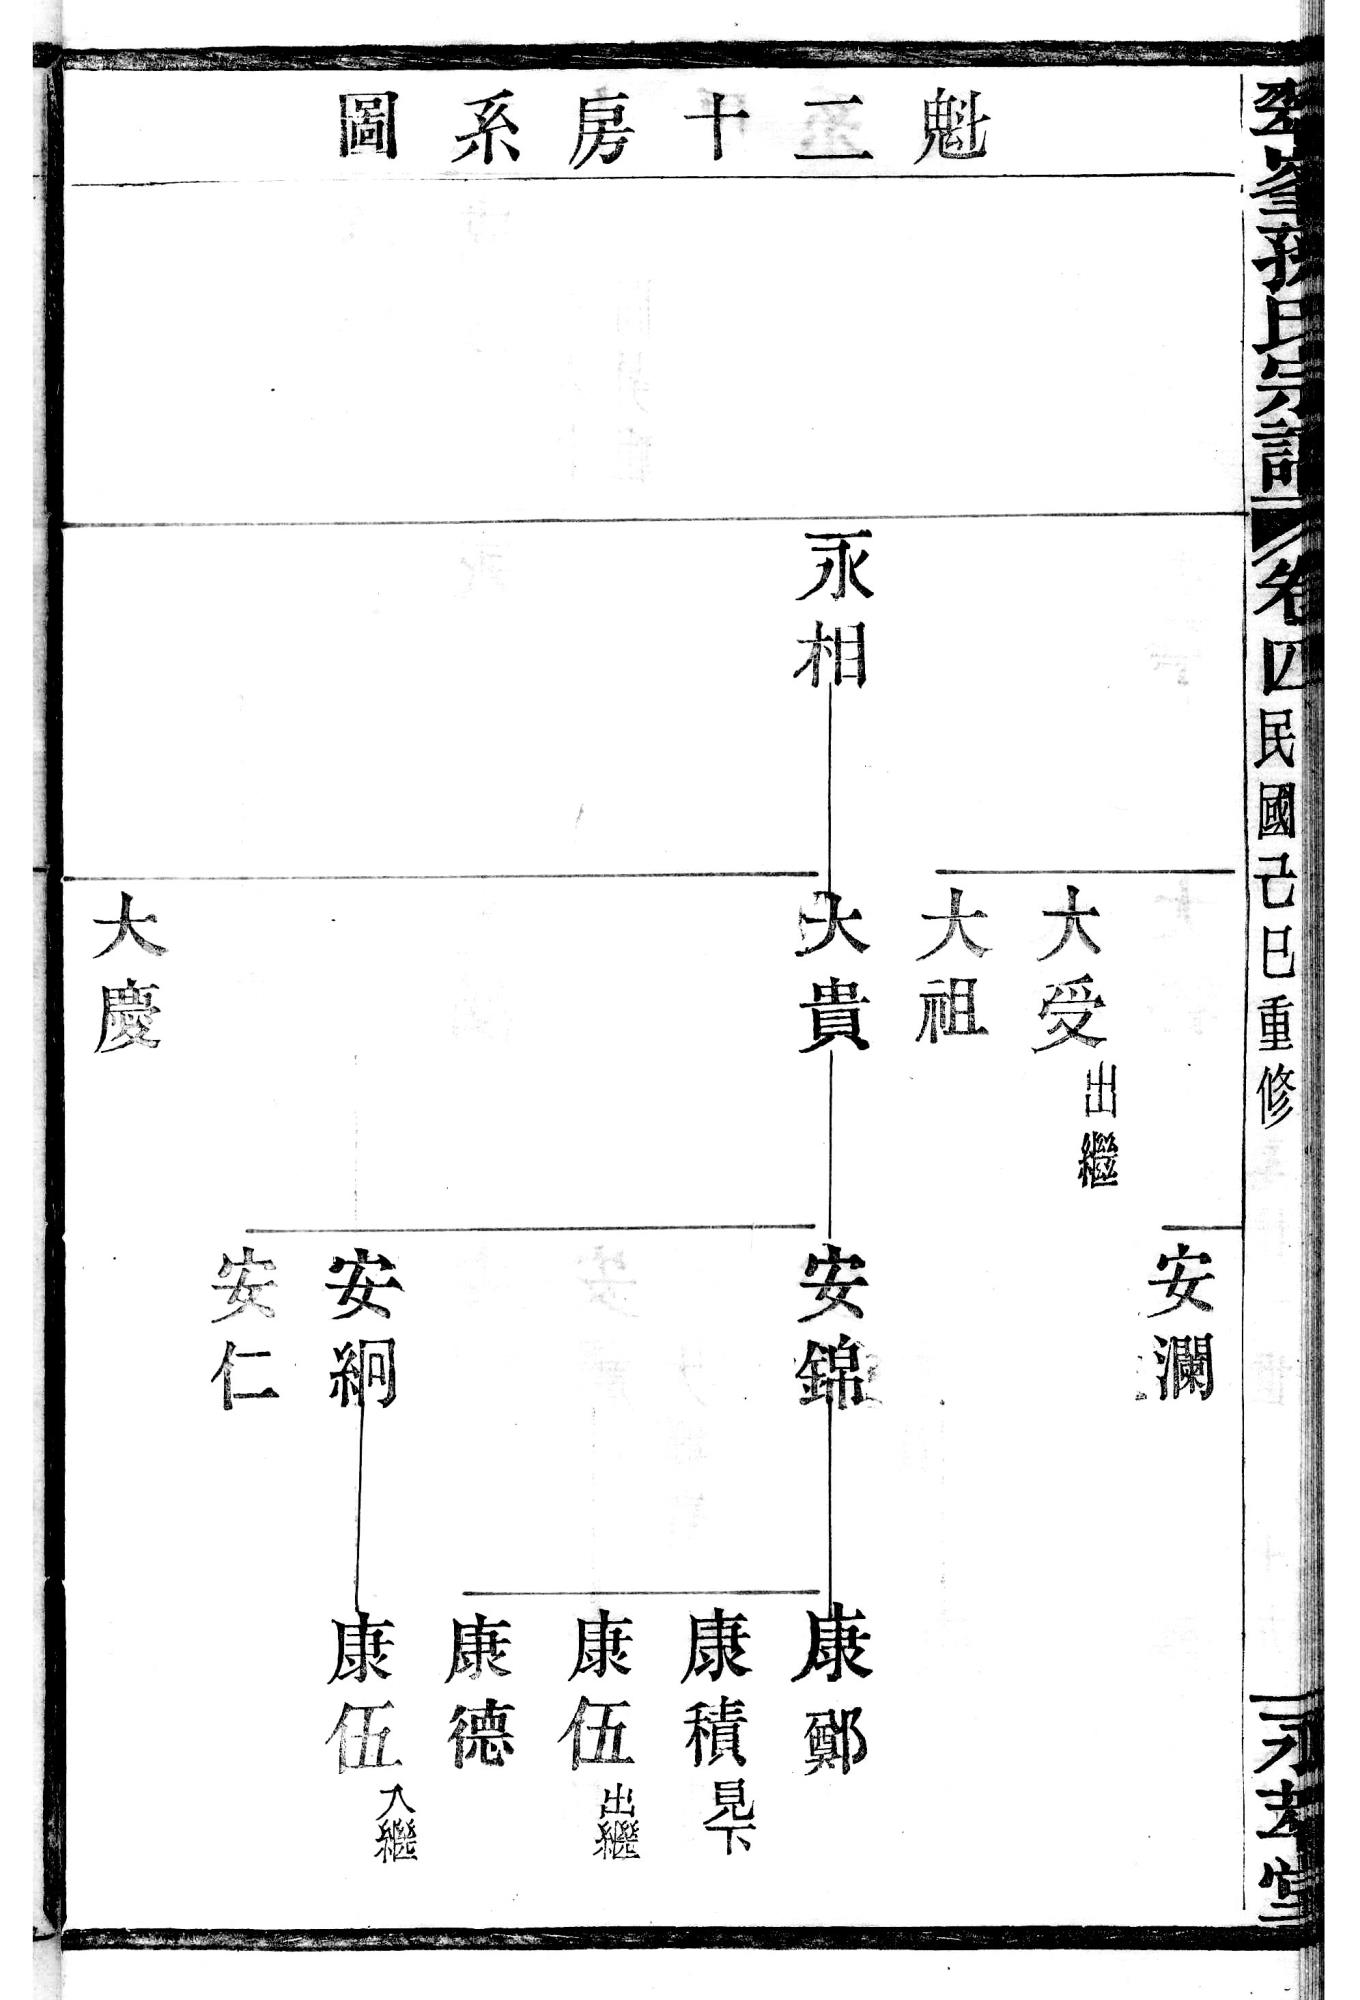 峯孫氏宗譜
卷四
民國己巳重修
魁二十房系圖
永相
大受
出繼
大祖
大貴
大慶
安瀾
安錦
安絅
安仁
康鄭
康積
見下
康伍
出繼
康德
康伍
入繼